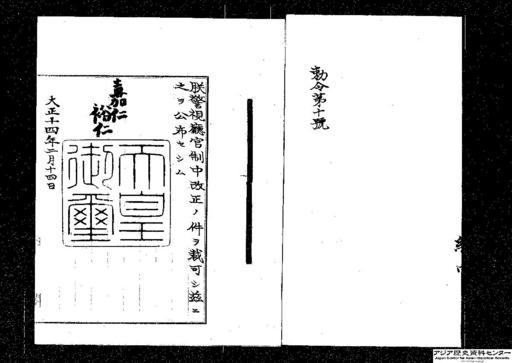 勅令第十號
朕警視廳官制中改正ノ件ヲ裁可シ茲ニ
之ヲ公布セシム
嘉仁
裕仁
大正十四年二月十四日
天皇
御璽
アジア歴史資料センター
Japan Center for Asian Historical Records